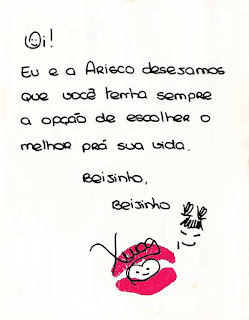 Oi!
Eu e a Arisco desejamos
que você tenha sempre
a opção de escolher o
melhor prá sua vida.
Beijinho,
Beijinho
Xuxa